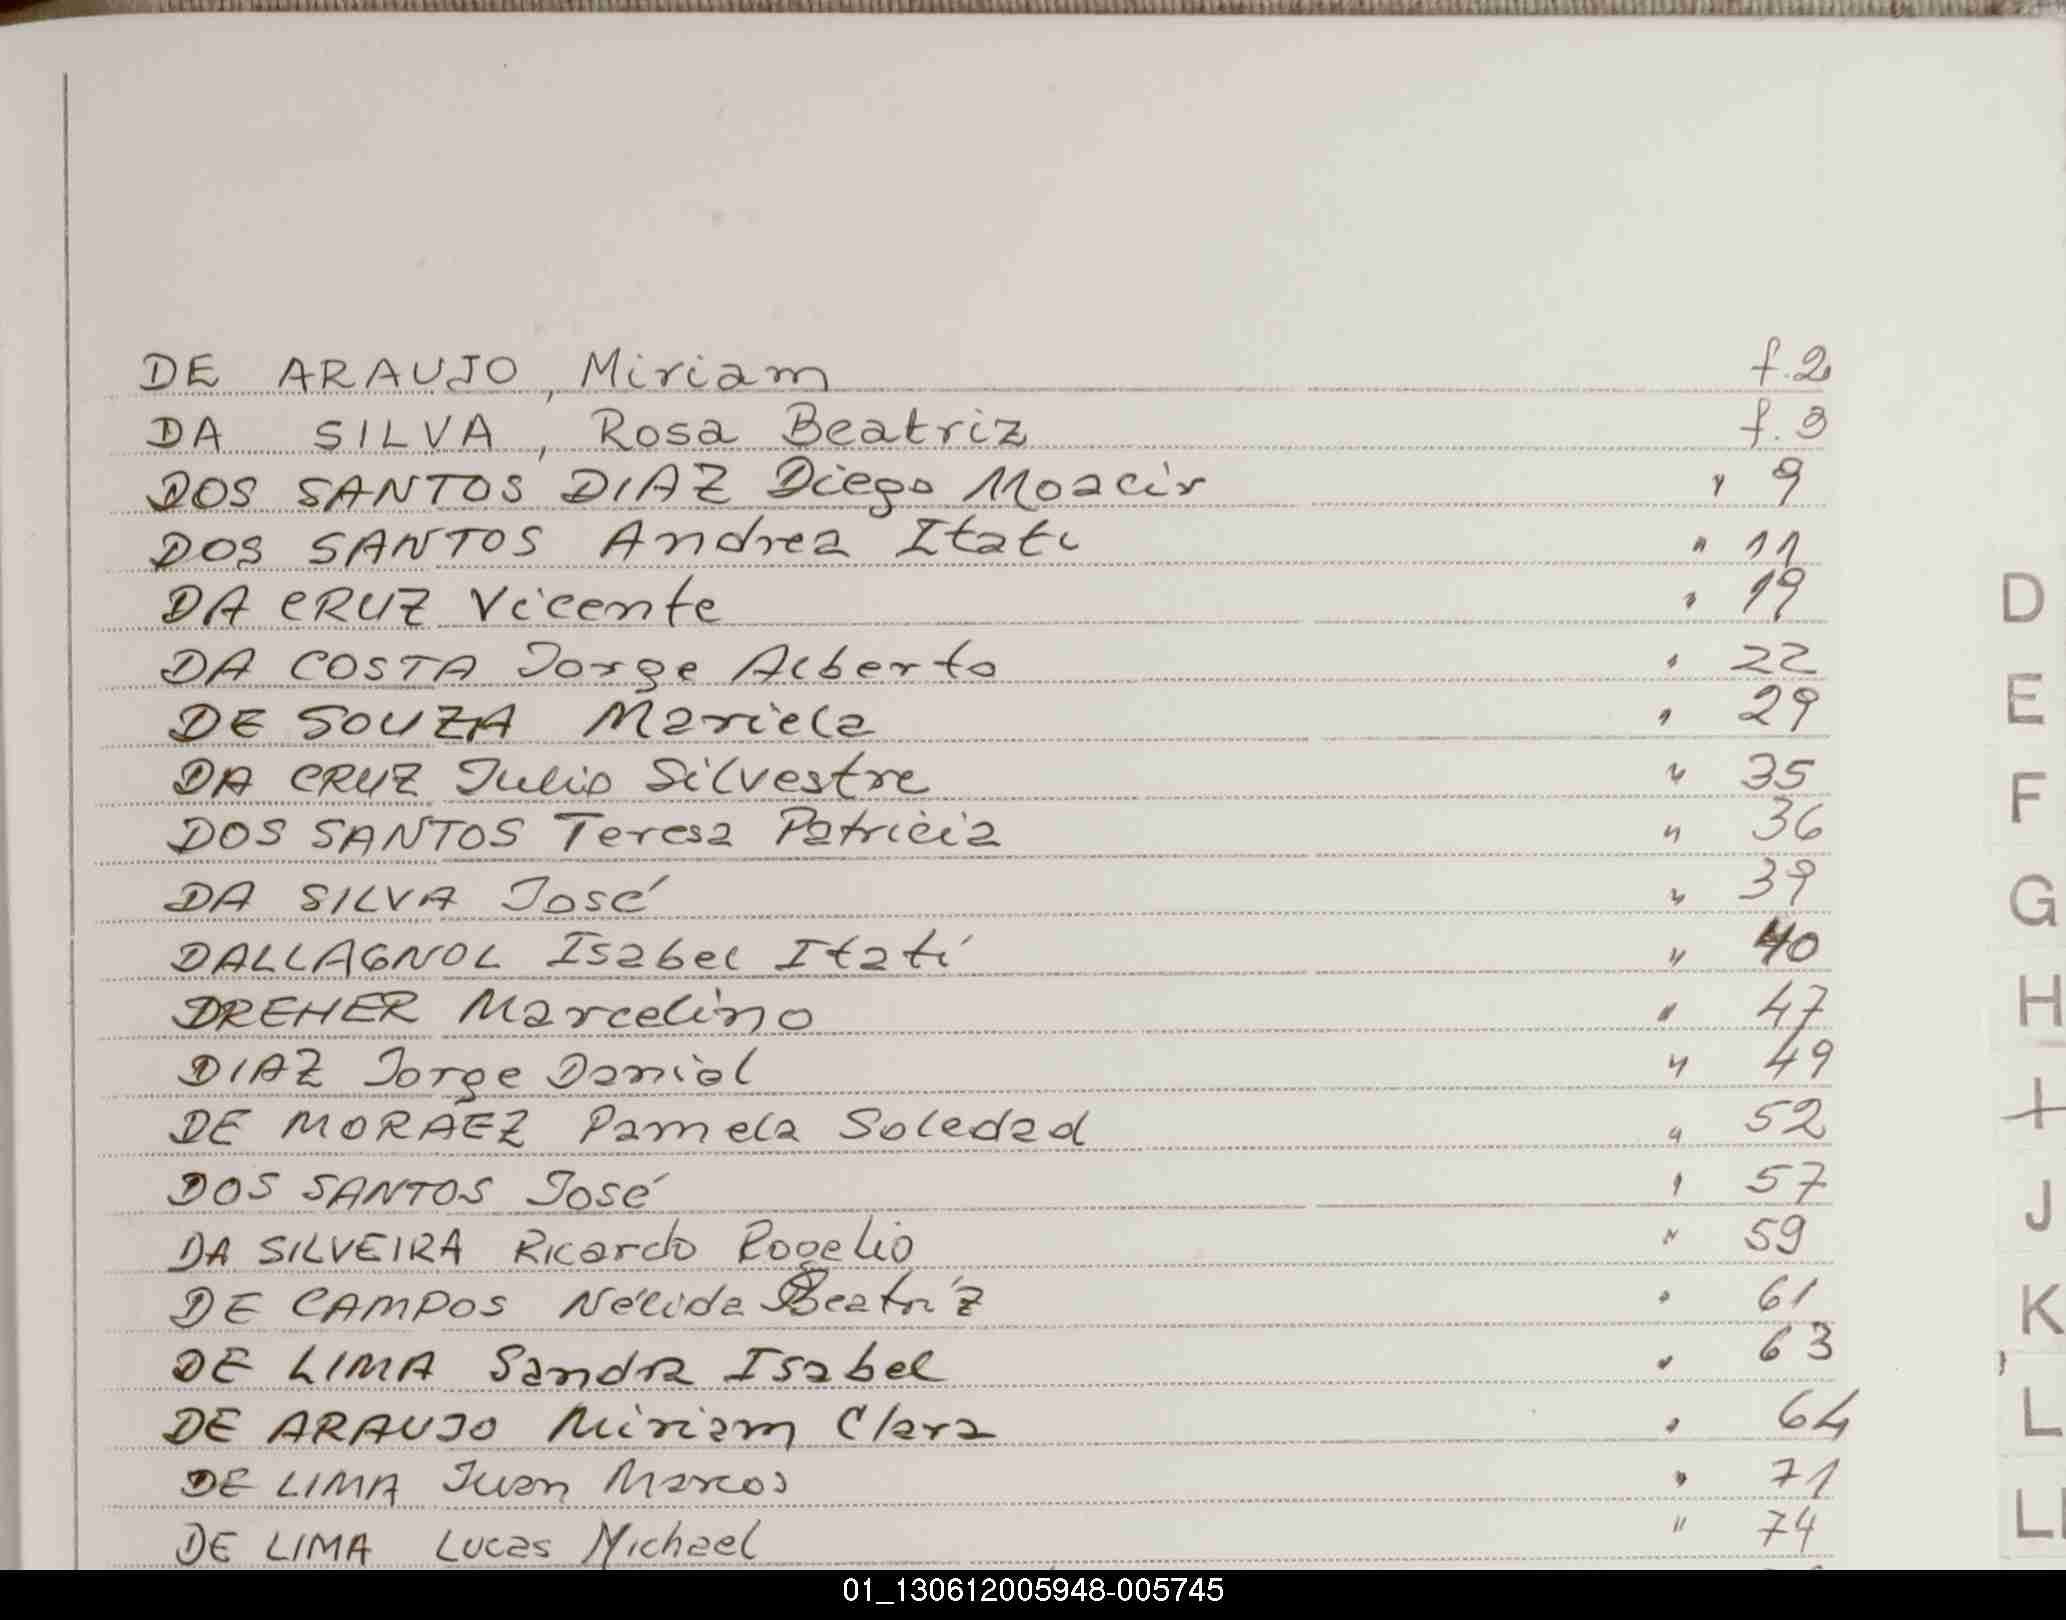 DE ARAUJO, Miriam f.2
DA SILVA, Rosa Beatriz f.3
DOS SANTOS DIAZ Diego Moacir " 9
DOS SANTOS Andrea Itati " 11
DA CRUZ Vicente " 19
DA COSTA Jorge Alberto " 22
DE SOUZA Mariela " 29
DA CRUZ Julio Silvestre " 35
DOS SANTOS Teresa Patricia " 36
DA SILVA José " 39
DALLAGNOL Isabel Itatí " 40
DREHER Marcelino " 47
DIAZ Jorge Daniel " 49
DE MORAEZ Pamela Soledad " 52
DOS SANTOS José " 57
DA SILVEIRA Ricardo Rogelio " 59
DE CAMPOS Nélida Beatríz " 61
DE LIMA Sandra Isabel " 63
DE ARAUJO Miriam Clara " 64
DE LIMA Juan Marcos " 71
DE LIMA Lucas Michael " 74
D
E
F
G
H
I
J
K
L
Ll
01_130612005948-005745